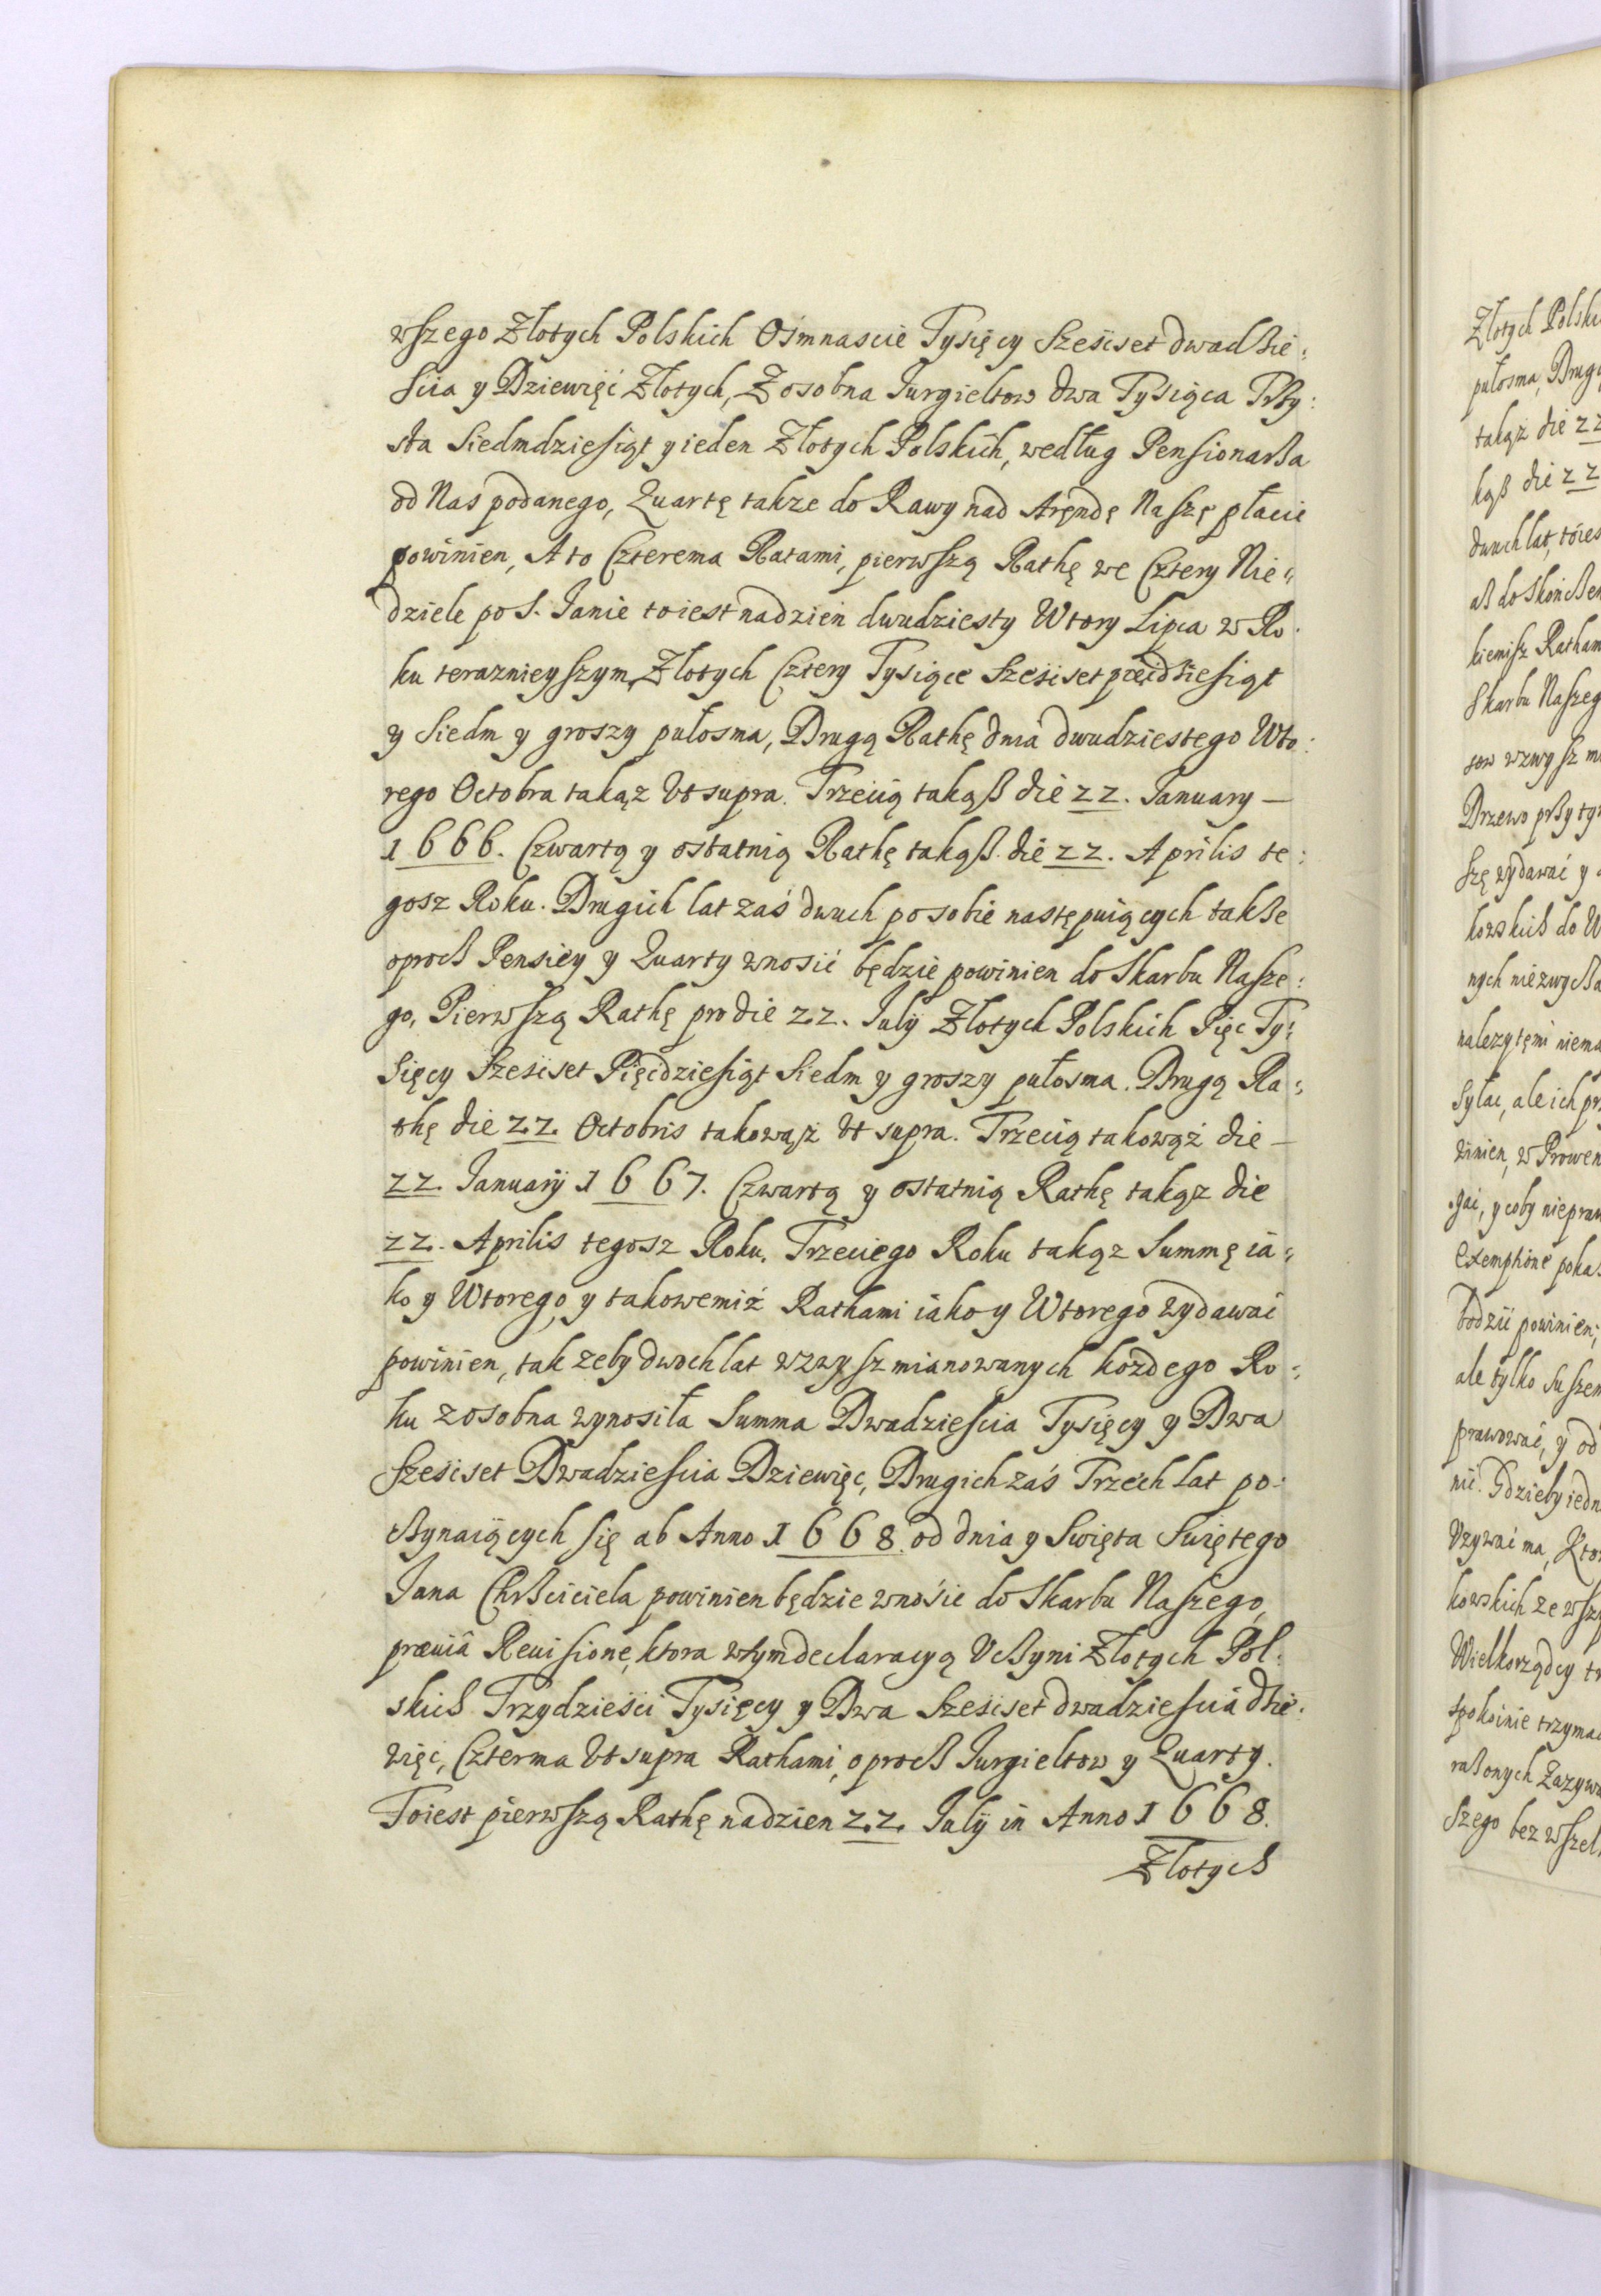 wszego Złotych Polskich Ośmnascie Tysięcy Sześćset dwadßie:
scia y Dziewięć Złotych, Zosobna Iurgieltow dwa Tysiąca Trßy:
sta Siedmdziesiąt y ieden Złotych Polskich, według Pensionarßa
od Nas podanego, Quartę także do Rawy nad Arendę Naszę płacic
powinien, A to Czterema Ratami, pierwszą Rathę we Cztery Nie:
dziele po S. Janie toiest nadzień dwudziesty Wtory Lipca w Ro:
ku teraznieyszym, Złotych Cztery Tysiące Sześćset pięćdßiesiąt
y Siedm y groszy pułosma, Drugą Rathę dnia dwudziestego Wto:
rego Octobra takąz Vt supra. Trzecią takąß die 22. January —
1666. Czwartą y ostatnią Rathę takąß die 22. Aprilis te:
gosz Roku. Drugich lat zaś dwuch po sobie następuiących takße
oproß Pensiey y Quarty wnosić będzie powinien do Skarbu Nasze:
go, Pierwszą Rathę pro die 22. Julÿ Złotych Polskich Pięc Ty:
sięcy Sześćset Pięćdziesiąt Siedm y groszy pułosma. Drugą Ra:
thę die 22. Octobris takowąż Vt supra. Trzecią takowąż die —
22. Januarÿ 1667. Czwartą y ostatnią Rathę takąz die
22. Aprilis tegosz Roku. Trzeciego Roku takąz Summę ia:
ko y Wtorego, y takowemiż Rathami iako y Wtorego wydawać
powinien, tak zeby dwoch lat wzwysz mianowanych kozdego Ro:
ku zosobna wynosiła Summa Dwadziescia Tysięcy y Dwa
Sześćset Dwadziescia Dziewięc, Drugich zaś Trzech lat po:
cßynaiących się ab Anno 1668. od dnia y Swięta Swiętego
Jana Chrßciciela powinien będzie wnośic do Skarbu Naszego,
præuiâ Reuisione, ktora wtym declaracyą Vcßyni Złotych Pol:
skich Trzydzieści Tysięcy y Dwa Sześćset dwadziescia dßie:
więć, Czterma Vt supra Rathami, oprocß Iurgieltow y Quarty.
Toiest pierwszą Rathę nadzien 22. Julÿ in Anno 1668.
Złotych